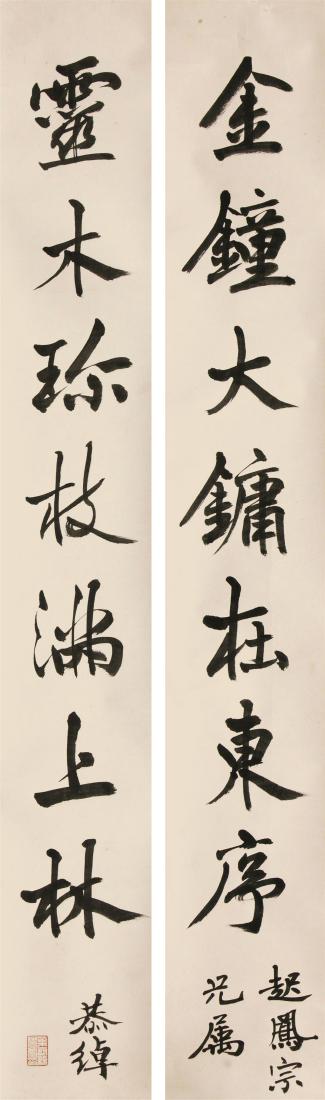 金鐘大鏞在東序
起鳳宗
兄属
靈木珎枝滿上林
恭綽